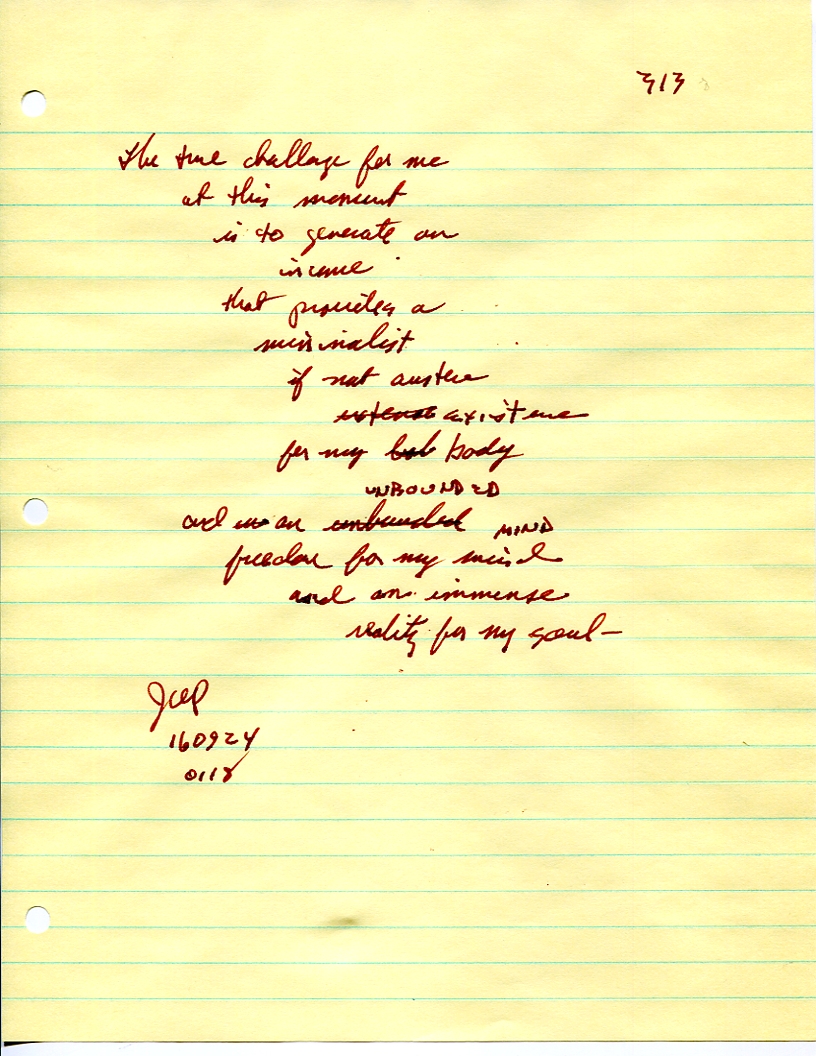 313
The true challenge for me
at this moment
is to generate an
income
that provides a
minimalist
if not austere
existence
for my bob body
UNBOUNDED
and an unbounded MIND
freedom for my mind
and an immense
reality for my soul—
JWP
160924
0118